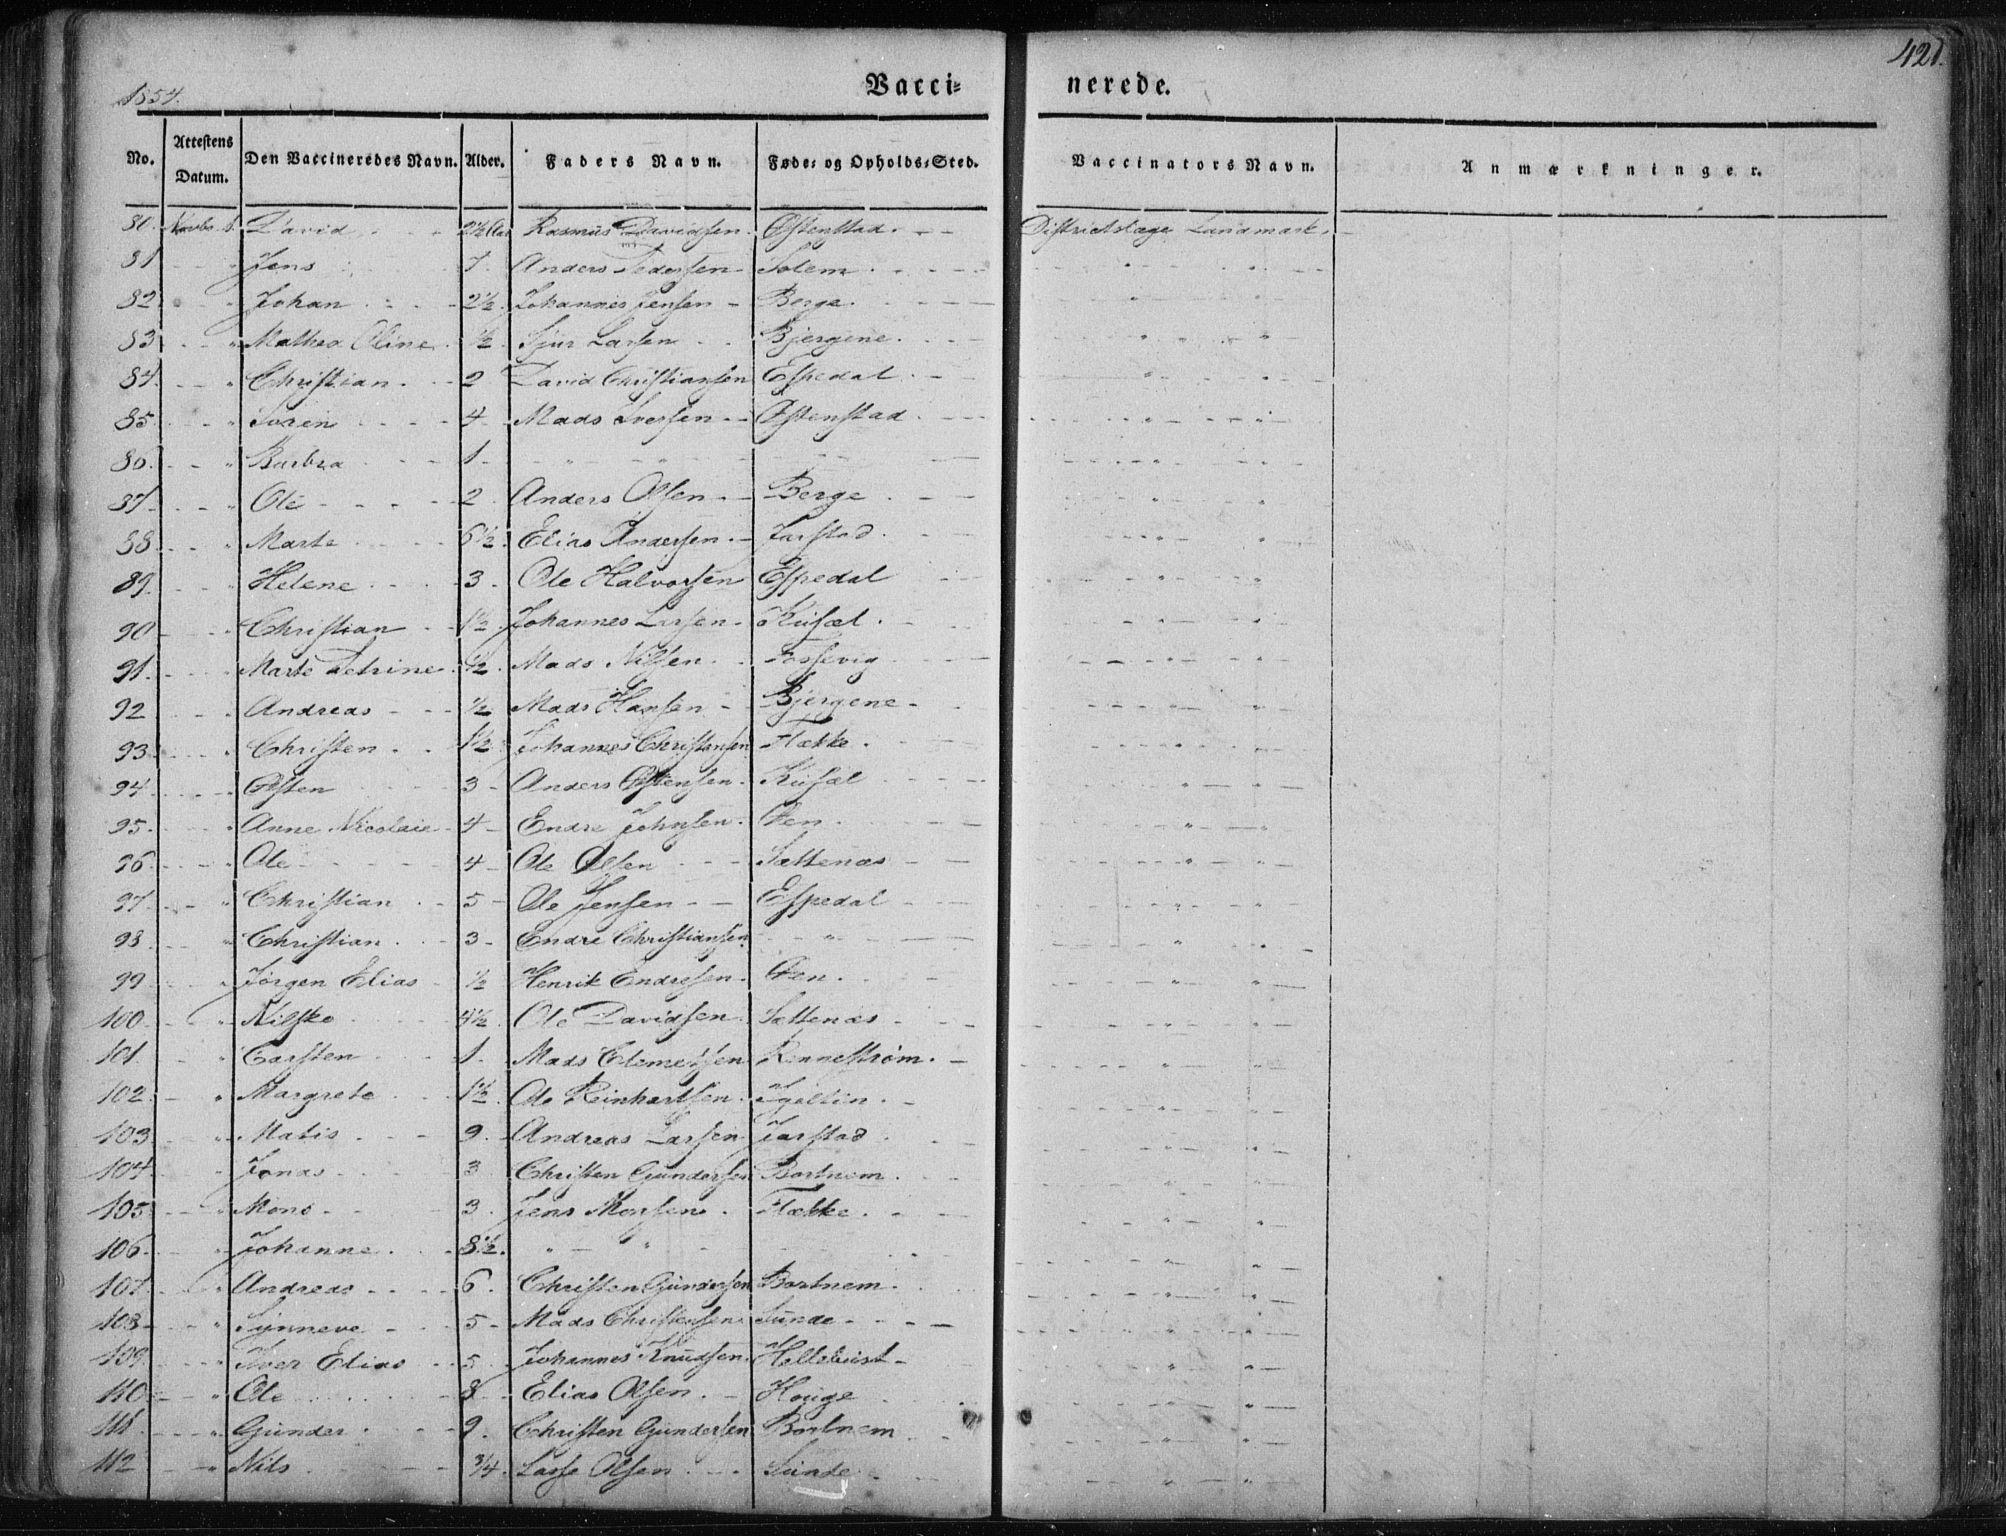 421.
1854.
Vacci- nerede.
No. Attestens Datum. Den Vaccineredes Navn. Alder. Faders Navn. Føde- og Opholds-Sted. Vaccinators Navn. Anmærkninger.
80. Novbr 1. David - - 2 1/2 Aar Rasmus Davidsen. Østenstad. - - Districtslæge Landmark. -
81 - - " Jens - - 7. Anders Pedersen - Solem. - - - - " - - " -
82 - - " Johan - - 2 1/2. Johannes Jensen - Berge. - - - - " - - " -
83 - - " Mathea Oline. 1/2 Sjur Larsen - - Bjergene. - - - " - - " -
84. - - " Christian. - 2 David Christiansen Espedal - - - - " - - " -
85 - - " Søren - - 4 - Mads Iversen - - Østenstad - - - - " - - " -
86. - - " Barbra - - 1 - - " - " - - - - - - " - - " -
87. - - " Ole - - - 2. Anders Olsen - - Berge - - - - " - - " -
88. - - " Marte - - 6 1/2. Elias Andersen. - Jarstad. - - - - " - - " -
89. - - " Helene - - 3 - Ole Halvorsen Espedal - - - - " - - " -
90 - - " Christian - - 1 1/2. Johannes Larsen - Kusæl. - - - - " - - " -
91. - - " Marte Petrine. 1/2 Mads Nilsen. - Fossevig - - - - " - - " -
92 - - " Andreas - - 1/2 Mads Hansen - Bjergene - - - - " - - " -
93. - - " Christen - - 1 1/2 Johannes Christensen Flække. - - - - " - - " -
94. - - " Østen - - 3 - Anders Østensen. Kusæl - - - - " - - " -
95. - - " Anne Nicolaie - 4 - Endre Johnsen. Øen. - - - - " - - " -
96. - - " Ole - - - 4 - Ole Olsen - - Sættenæs - - - - " - - " -
97. - - " Christian - - 5 - Ole Jensen - - Espedal - - - - " - - " -
98. - - " Christian. - 3 - Endre Christiansen. - " - - - - " - - " -
99 - - " Jørgen Elias - 1/2 Henrik Endresen. Øen. - - - - " - - " -
100. - - " Nilske - - 4 1/2. Ole Davidsen. Sættenæs - - - - " - - " -
101. - - " Carsten - - 1. Mads Clemetsen Rennestrøm. - - - " - - " -
102. - - " Margrete - - 1 1/2. Ole Reinhartsen. - - - - " - - " -
103 - - " Matis - - 9. - Andreas Larsen Jarstad. - - - - " - - " -
104 - - " Jonas - - 3 Christen Gundersen Bortnem. - - - - " - - " -
105 - - " Mons - - 3. Jens Monsen. Flække. - - - - " - - " -
106. - - " Johanne. - 8 1/2. " - " - - - - - " - - " -
107. - - " Andreas - - 6. Christen Gundersen Bortnem. - - - - " - - " -
108 - - " Synneve - - 5 - Mads Christensen. Sunde - - - - " - - " -
109 - - " Iver Elias - - 5. Johannes Knudsen. Helleburst - - - - " - - " -
110 - - " Ole - - - 8 - Elias Olsen. - Houge - - - - " - - " -
111. - - " Gunder - - 9. Christen Gundersen Bortnem - - - - " - - " -
112 - - " Nils - - 3/4. Lasse Olsen. - Sunde - - - - " - - " -